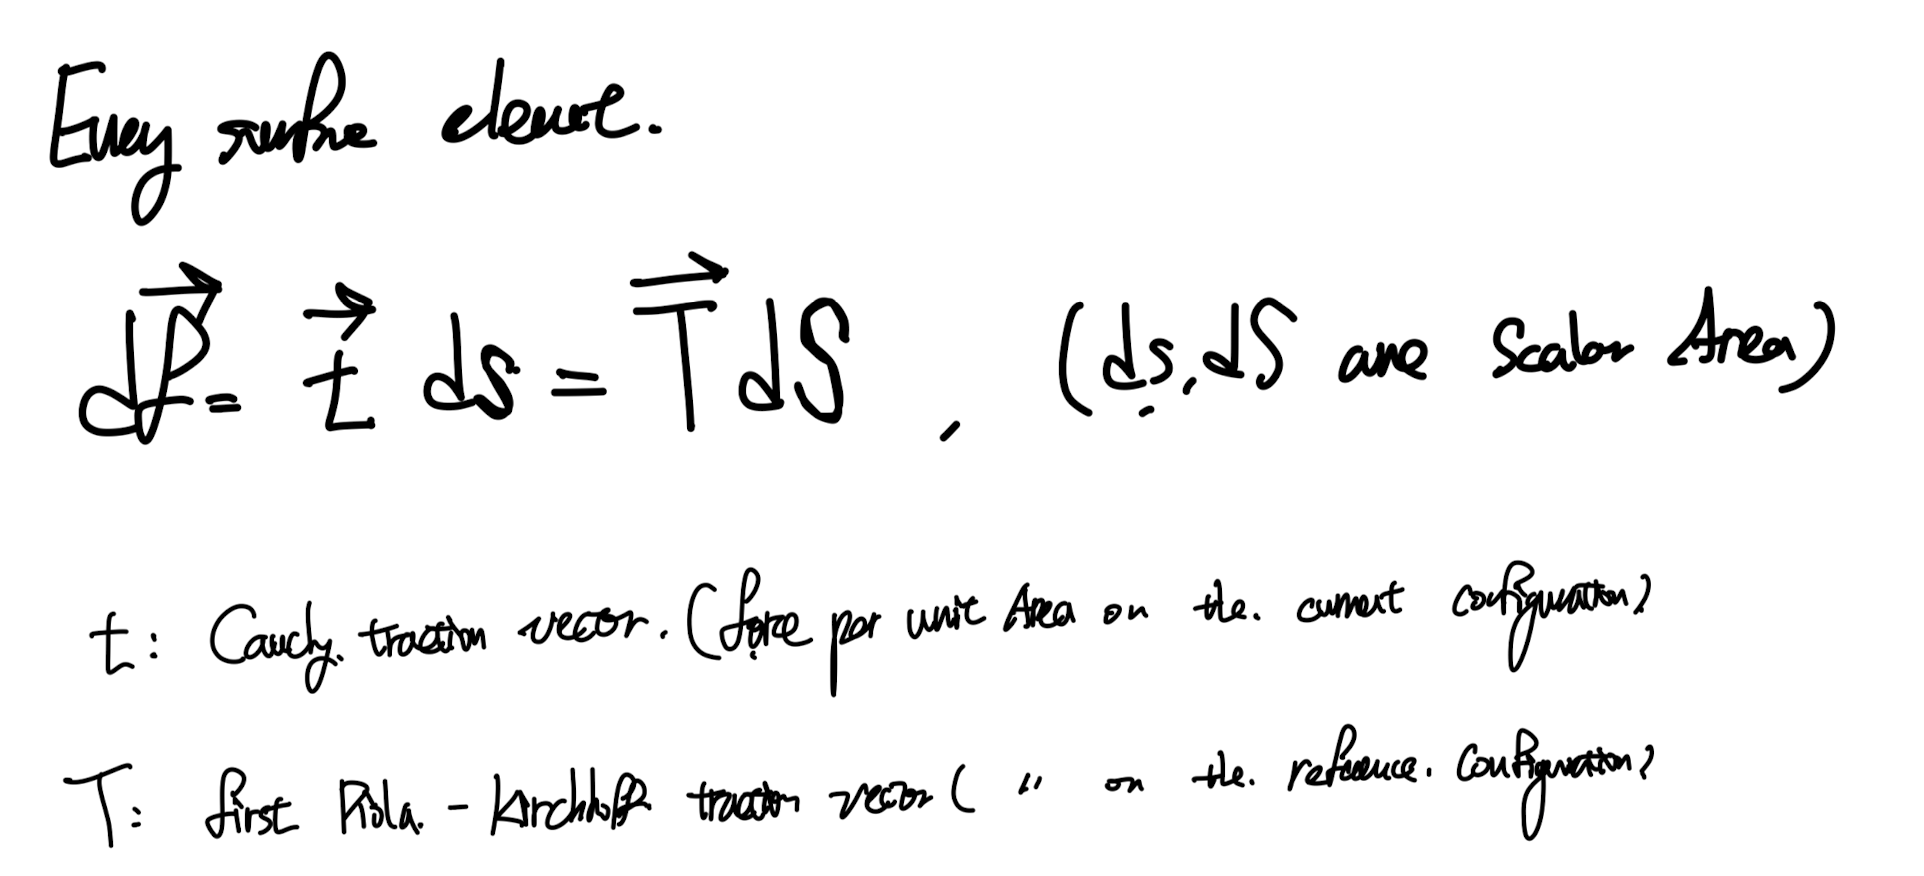 Every surface element.
d\vec{P} = \vec{t} ds = \vec{T} dS , (ds, dS are Scalar Area)
t: Cauchy traction vector. (force per unit Area on the. current configuration)
T: first Piola - Kirchhoff traction vector ( " on the. reference. configuration)